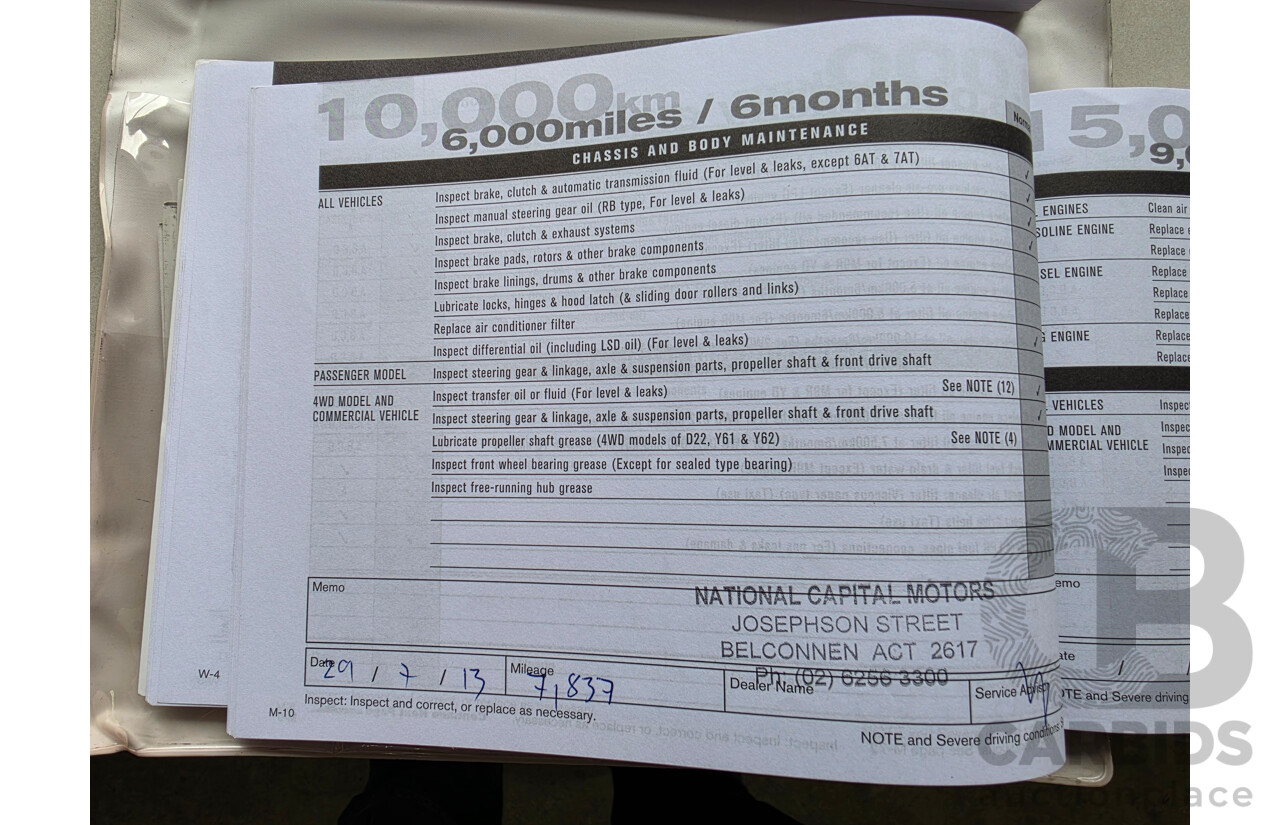 10,000km
6,000miles / 6months
CHASSIS AND BODY MAINTENANCE
ALL VEHICLES
Inspect brake, clutch & automatic transmission fluid (For level & leaks, except 6AT & 7AT)
Inspect manual steering gear oil (RB type, For level & leaks)
Inspect brake, clutch & exhaust systems
Inspect brake pads, rotors & other brake components
Inspect brake linings, drums & other brake components
Lubricate locks, hinges & hood latch (& sliding door rollers and links)
Replace air conditioner filter
Inspect differential oil (including LSD oil) (For level & leaks)
PASSENGER MODEL
Inspect steering gear & linkage, axle & suspension parts, propeller shaft & front drive shaft
4WD MODEL AND
COMMERCIAL VEHICLE
Inspect transfer oil or fluid (For level & leaks) See NOTE (12)
Inspect steering gear & linkage, axle & suspension parts, propeller shaft & front drive shaft
Lubricate propeller shaft grease (4WD models of D22, Y61 & Y62) See NOTE (4)
Inspect front wheel bearing grease (Except for sealed type bearing)
Inspect free-running hub grease
Memo
NATIONAL CAPITAL MOTORS
JOSEPHSON STREET
BELCONNEN ACT 2617
Ph: (02) 6256 3300
Date 29 / 7 / 13
Mileage 7,837
Dealer Name
Service
Inspect: Inspect and correct, or replace as necessary.
NOTE and Severe driving
M-10
W-4
15,0
9,
ENGINES
Clean air
ENGINE
Replace
Replace
ENGINE
Replace
Replace
Replace
ENGINE
Replace
Replace
VEHICLES
MODEL AND
VEHICLE
NOTE and Severe driving
B
CARBIDS